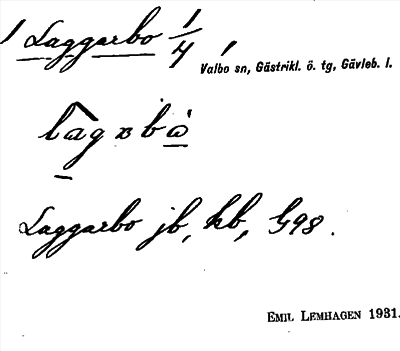 1 Laggarbo 1/4
Valbo sn, Gästrikl. ö. tg, Gävleb. l.
Laggarbo jb, kb, G98.
EMIL LEMHAGEN 1931.